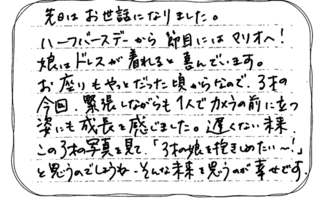 先日はお世話になりました。
ハーフバースデーから節目にはマリオへ!
娘はドレスが着れると喜んでいます。
お座りもやっとだった頃からなので、3才の
今回、緊張しながらも1人でカメラの前に立つ
姿にも成長を感じました。遅くない未来
この3才の写真を見て「3才の娘を抱きしめたい〜!」
と思うのでしょうな…そんな未来を思うのが幸せです。